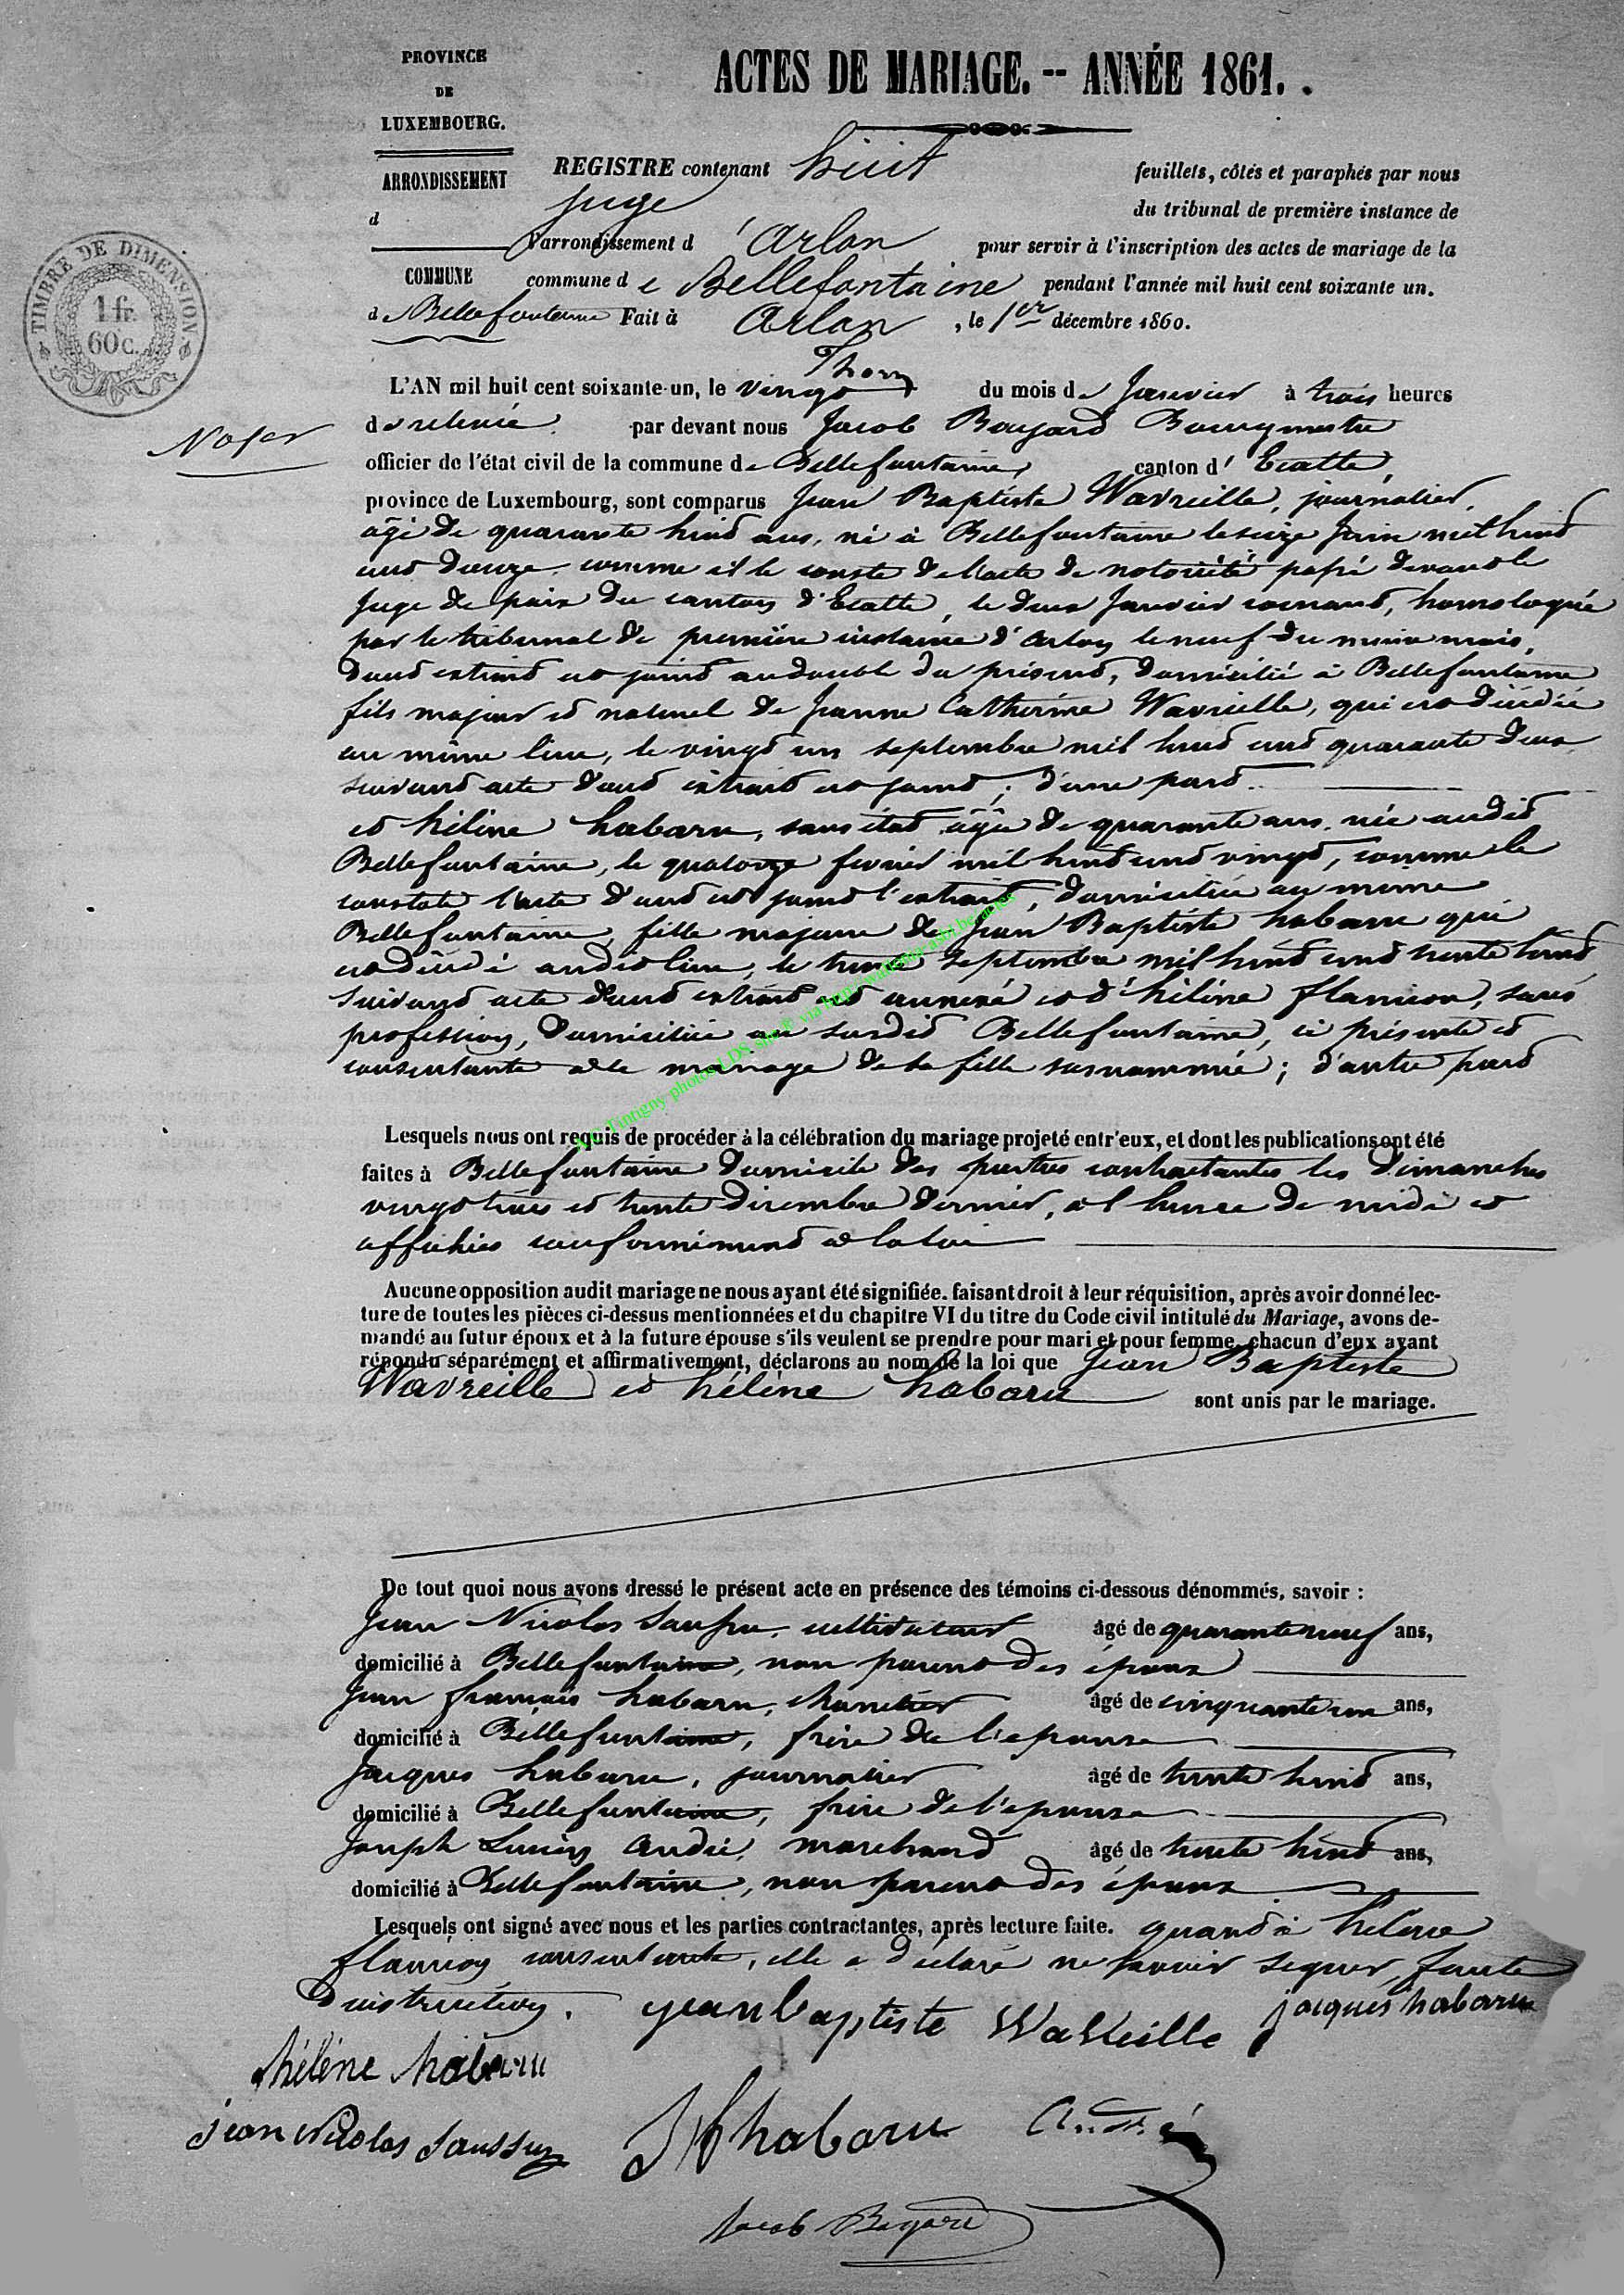 PROVINCE
DE
LUXEMBOURG.
ARRONDISSEMENT
d
COMMUNE
de Bellefontaine
TIMBRE DE DIMENSION
1 fr.
60 c.
ACTES DE MARIAGE. -- ANNÉE 1861. .
REGISTRE contenant huit feuillets, côtés et paraphés par nous
juge du tribunal de première instance de
l'arrondissement d'Arlon pour servir à l'inscription des actes de mariage de la
commune de Bellefontaine pendant l'année mil huit cent soixante un.
Fait à Arlon, le 1er décembre 1860.
L'AN mil huit cent soixante-un, le vingt du mois de Janvier à trois heures
de relevée par devant nous Jacob Bayard Bourgmestre
officier de l'état civil de la commune de Bellefontaine canton d'Etalle
province de Luxembourg, sont comparus Jean Baptiste Wavreille, journalier,
âgé de quarante huit ans, né à Bellefontaine le seize Juin mil huit
cent douze comme il le conste de l'acte de notoriété passé devant le
Juge de paix du canton d'Etalle, le deux Janvier courant, homologuée
par le tribunal de première instance d'Arlon le neuf du même mois,
dont extrait est joint au double du présent, domicilié à Bellefontaine
fils majeur et naturel de Jeanne Catherine Wavreille, qui est décédée
au même lieu, le vingt un septembre mil huit cent quarante deux
suivant acte dont extrait est joint; d'une part.
et hélène habaru, sans état âgée de quarante ans née audit
Bellefontaine, le quatorze fevrier mil huit cent vingt, comme le
constate l'acte dont est joint l'extrait, domiciliée au même
Bellefontaine, fille majeure de Jean Baptiste habaru qui
est décédé audit lieu, le trente septembre mil huit cent trente huit
suivant acte dont extrait est annexé et d'hélène flamion, sans
profession, domiciliée au susdit Bellefontaine, ci présente et
consentante à le mariage de sa fille susnommée; d'autre part
A.C. Tintigny photos LDS
Lesquels nous ont requis de procéder à la célébration du mariage projeté entr'eux, et dont les publications ont été
faites à Bellefontaine domicile des parties contractantes les dimanches
vingt trois et trente décembre dernier, à l'heure de midi et
affichées conformément à la loi
Aucune opposition audit mariage ne nous ayant été signifiée. faisant droit à leur réquisition, après avoir donné lec-
ture de toutes les pièces ci-dessus mentionnées et du chapitre VI du titre du Code civil intitulé du Mariage, avons de-
mandé au futur époux et à la future épouse s'ils veulent se prendre pour mari et pour femme, chacun d'eux ayant
répondu séparément et affirmativement, déclarons au nom de la loi que Jean Baptiste
Wavreille et hélène habaru sont unis par le mariage.
De tout quoi nous avons dressé le présent acte en présence des témoins ci-dessous dénommés, savoir :
Jean Nicolas Saussu, cultivateur âgé de quarante neuf ans,
domicilié à Bellefontaine, non parent des époux
Jean françois habaru, âgé de cinquante un ans,
domicilié à Bellefontaine, frère de l'épouse
Jacques habaru, journalier âgé de trente huit ans,
domicilié à Bellefontaine, frère de l'épouse
Joseph Lucien André, marchand âgé de trente huit ans,
domicilié à Bellefontaine, non parent des époux
Lesquels ont signé avec nous et les parties contractantes, après lecture faite. quand à hélène
flamion consentante, elle a déclaré ne savoir signer, faute
d'instruction.
jean baptiste Wavreille
jacques habaru
hélène habaru
jean Nicolas Saussu
Jf habaru
André
Jacob Bayard